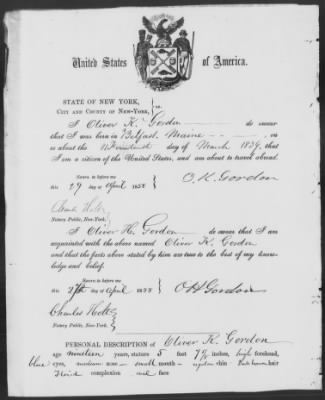 United States of America.
STATE OF NEW YORK,
CITY AND COUNTY OF NEW-YORK, } ss.
I Oliver K. Gordon do swear
that I was born in Belfast, Maine on
or about the day of March 1839, that
I am a citizen of the United States, and am about to travel abroad.
Sworn to before me
this 29 day of April 1858
O. K. Gordon
Charles
Notary Public, New-York.
I Oliver H. Gordon do swear that I am
acquainted with the above named Oliver K. Gordon
and that the facts above stated by him are true to the best of my know-
ledge and belief.
Sworn to before me
this day of April 1858
O H Gordon
Charles
Notary Public, New-York.
PERSONAL DESCRIPTION of Oliver K. Gordon
age nineteen years, stature 5 feet 7 1/2 inches, high forehead,
blue eyes, medium nose small mouth regular chin hair
florid complexion oval face